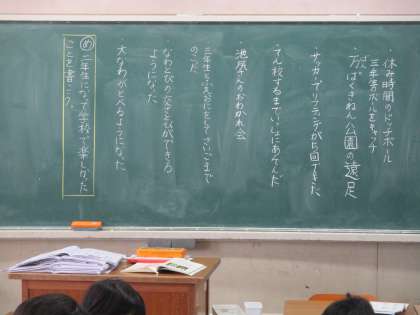 ・休み時間のドッチボール
三年生ボールをキャッチ
・万ばくきねん公園の遠足
・サッカーでリフティングが5回できた
・てん校するまでいっしょにあそんだ
・池尻さんのおわかれ会
・三年生とふえおにをしてさいごまで
のこった
・なわとびの交さとびができる
ようになった
・大なわがとべるようになった。
め 二年生になって学校で楽しかった
ことを書こう。